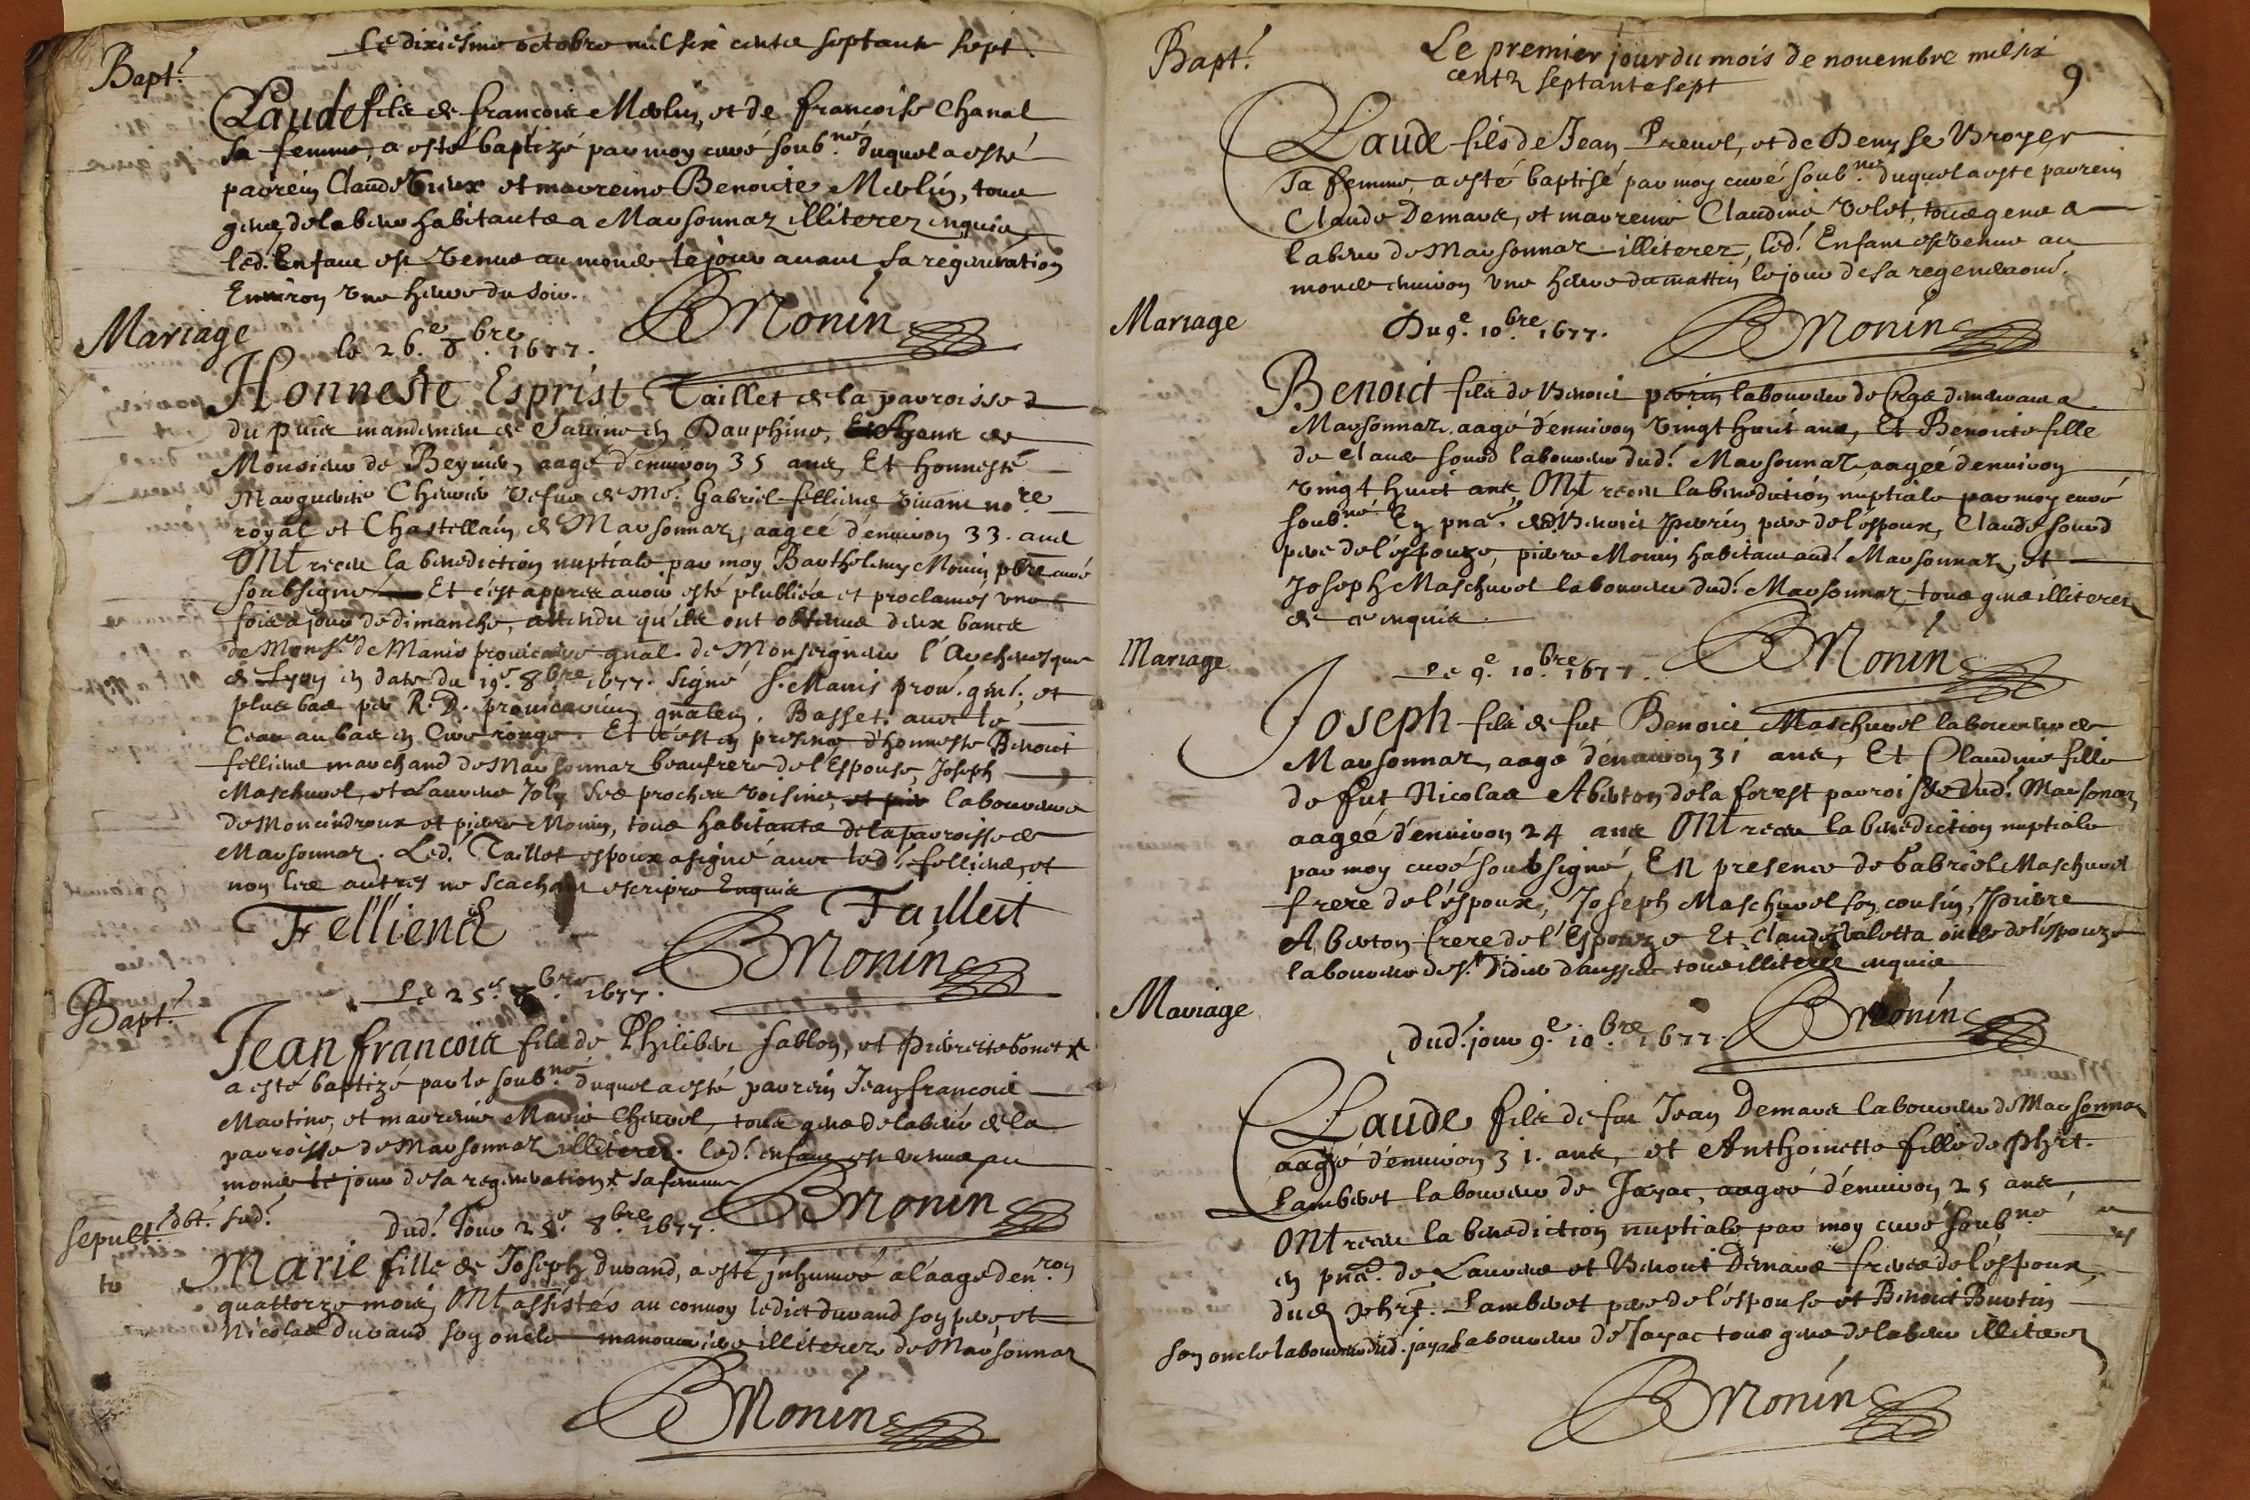 Le dixiesme octobre mil six cents septante sept
Bapt.
Claude fils de francois Merlin, et de francoise Chanal
sa femme, a esté baptizé par moy curé soub.né duquel a esté
parrein Claude et marreine Benoicte Merlin, tous
gens de labeur habitants a Marsonnaz illiterez enquis
led. Enfant est venus au monde le jour avant sa régénération
Environ une heure du soir.
BMonin
Mariage
le 26.e 8.bre 1677.
Honneste Esprist Taillet de la parroisse d
du puis mandement de en Dauphine, Agent de
Monsieur de Beyvier, aagé d'environ 35 ans, Et honneste
Marguerite Chevrier vefve de Me. Gabriel felliens vivant no.re
royal et Chastellain de Marsonnaz, aagée d'environ 33. ans
ONt receu la benediction nuptiale par moy Barthelemy Monin pbre curé
soubsigné Et c'est appres avoir esté plubliés et proclames une
fois a jour de dimanche, attendu qu'ils ont obtenus deux bancs
de Mons.r de Manis provicaire gnal. de Monseigneur l'Archevesque
de Lyon en date du 19.e 8.bre 1677. Signé S. Manis prov. gnl. et
plus bas per R. D. provicarium gnalem. Basset. avec le
Ceau au bas en Cire rouge. Et c'est en presence d'honneste Benoict
felliens marchand de Marsonnaz beaufrere de l'Espouse, Joseph
Maschurel, et Laurens Joly Ses proches voisins, labourers
de Moncindroux et pierre Monin, tous habitants de la parroisse de
Marsonnaz. Led. Taillet espoux a signé avec led. felliens, et
non les autres ne Scachant escripre Enquis
Felliend
Taillet
BMonin
Bapt.
Le 25.e 8.bre 1677.
Jean francois fils de Philibert Sablon, et pierrette bonet x
a esté baptizé par le soub.né duquel a esté parrein Jean francois
Martine, et marreine Marie Chervel, tous gens de labeur de la
parroisse de Marsonnaz illiterez. led. enfant est venus au
monde le jour de sa regeneration x sa femme
BMonin
Sepult.
dbt. sud.
to
Dud. Jour 25.e 8.bre 1677.
Marie fille de Joseph durand, a esté jnhumée a l'aage den.ron
quattorze mois, ONt assistés au convoy ledict durand son pere, et
Nicolas durand son oncle manouvriers illiterez de Marsonnaz
BMonin
9
Bapt.
Le premier jour du mois de novembre mil six
centz septante sept
Claude fils de Jean Prevel, et de Denyse Broyer
sa femme, a esté baptisé par moy curé soub.né duquel a esté parrein
Claude Demars, et marreine Claudine velet, tous gens de
labeur de Marsonnaz illiterez, led. Enfant est venus au
monde environ une heure du mattin le jour de sa regeneraon.
BMonin
Mariage
Du 9.e 10.bre 1677.
Benoict fils de Benoict perrin laboureur de demeurant a
Marsonnaz, aagé d'environ vingt huit ans, Et Benoicte fille
de Claude sourd laboureur dud. Marsonnaz, aagée d'environ
vingt huit ans, ONt receu la benediction nuptiale par moy curé
soub.né En pnce. dud Benoict perrin pere de l'éspoux, Claude sourd
pere de l'éspouze, pierre Monin habitant aud. Marsonnaz, et
Joseph Maschurel laboureur dud. Marsonnaz tous gens illiterez
de ce enquis.
BMonin
Mariage
Le 9.e 10.bre 1677.
Joseph fils de fut Benoict Maschurel laboureur de
Marsonnaz, aagé d'environ 31 ans, Et Claudine fille
de fut Nicolas Aberton de la forest parroisse dud. Marsonnaz
aagée d'environ 24 ans ONt receu la benediction nuptiale
par moy curé soubsigné, EN presence de Gabriel Maschurel
frere de l'éspoux, Joseph Maschurel son cousin, Pierre
Aberton frere de l'Espouze Et Claude valetta oncle de l'éspouze
laboureurs de S.t Didier d'aussiat tous illiterez enquis
BMonin
Mariage
Dud. jour 9.e 10.bre 1677.
Claude fils de fut Jean Demars laboureur de Marsonnaz
aagé d'environ 31. ans, et Anthoinette fille de phrt.
Lambert laboureur de Jayac, aagée d'environ 25 ans,
ONt receu la benediction nuptiale par moy curé soub.né
en pnce. de Laurens et Benoict Demars freres de l'éspoux,
dud phrt. Lambert pere de l'éspouse et Benoict Burtin
son oncle laboureur dud. jayac laboureurs de Jayac tous gens de labeur illiterez
BMonin